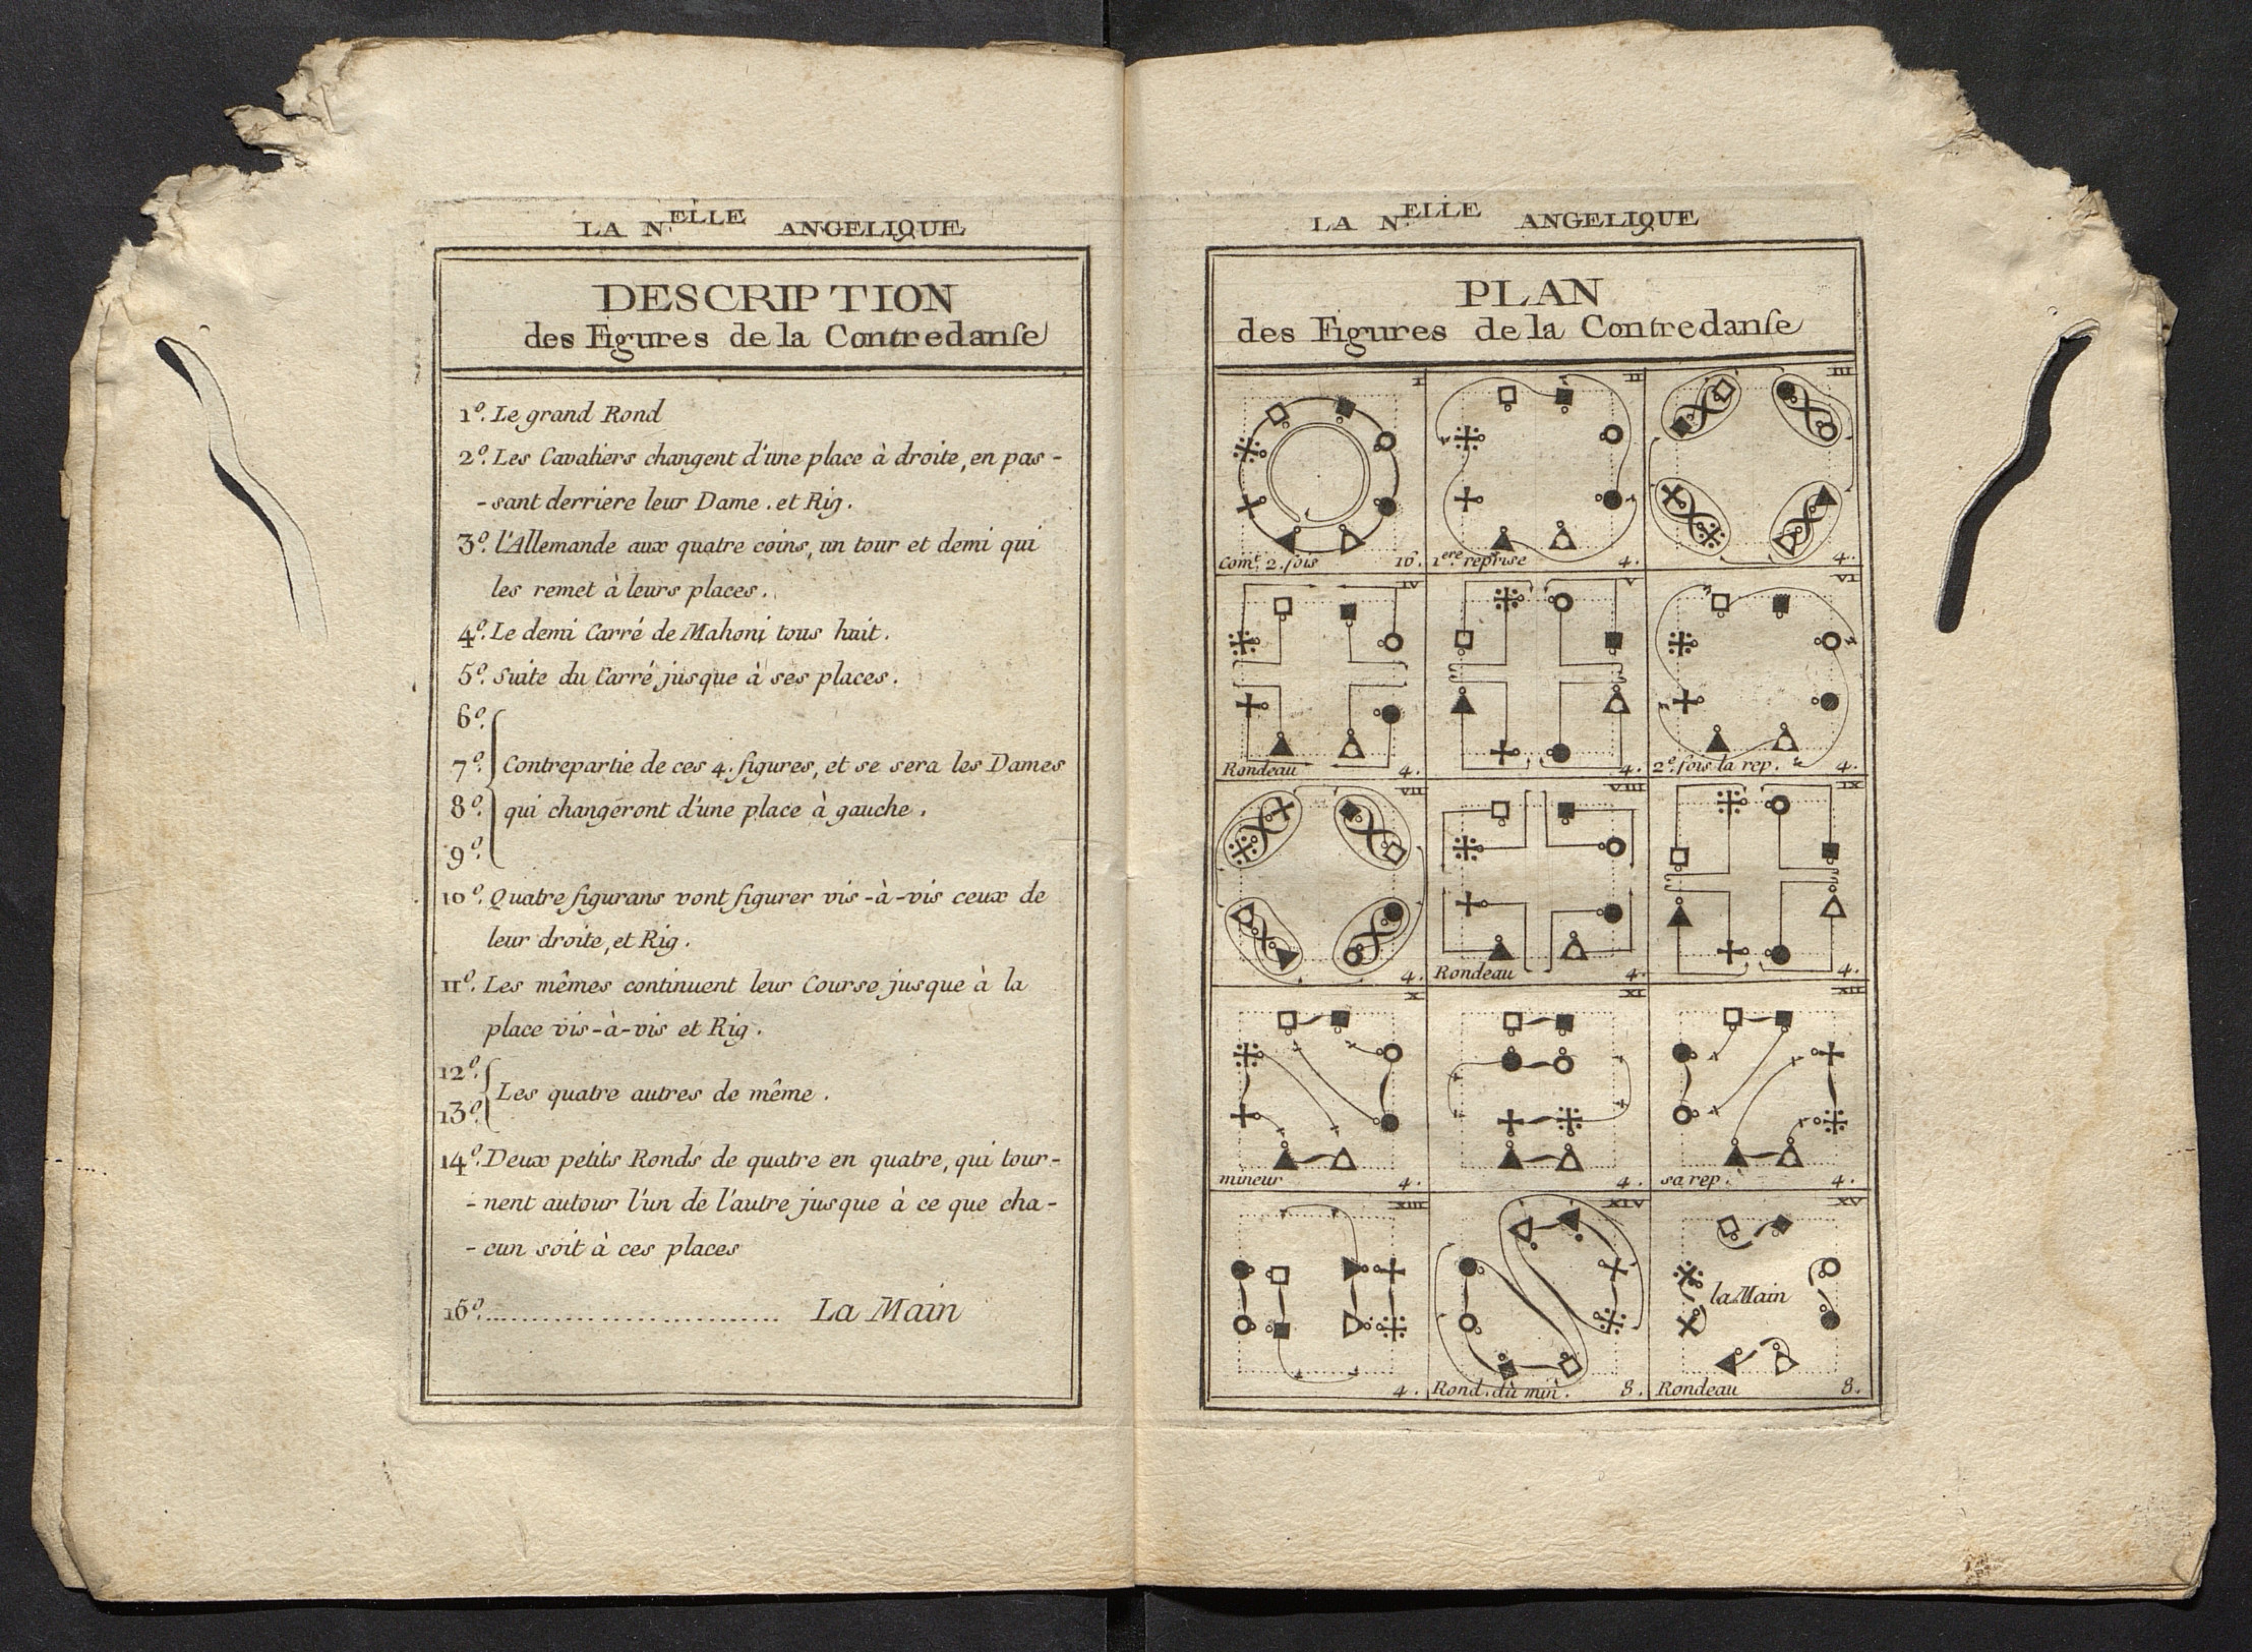 LA N.ELLE ANGELIQUE
DESCRIPTION
des Figures de la Contredanſe
1º. Le grand Rond
2º. Les Cavaliers changent d'une place à droite, en pas-
-sant derriere leur Dame. et Rig.
3º. l'Allemande aux quatre coins, un tour et demi qui
les remet à leurs places.
4º. Le demi Carré de Mahoni tous huit.
5º. Suite du Carré jusque à ses places.
6º.
7º. Contrepartie de ces 4. figures, et se sera les Dames
8º. qui changeront d'une place à gauche.
9º.
10º. Quatre figurans vont figurer vis-à-vis ceux de
leur droite, et Rig.
11º. Les mêmes continuent leur Course jusque à la
place vis-à-vis et Rig.
12º.
Les quatre autres de même.
13º.
14º. Deux petits Ronds de quatre en quatre, qui tour-
-nent autour l'un de l'autre jusque à ce que cha-
-cun soit à ces places
15º. La Main
LA N.ELLE ANGELIQUE
PLAN
des Figures de la Contredanſe
I II III
Com.t 2. fois 16. 1.ere reprise 4. 4.
IV V VI
Rondeau 4. 4. 2.e fois la rep. 4.
VII VIII IX
4. Rondeau 4. 4.
X XI XII
mineur 4. 4. sa rep. 4.
XIII XIV XV
la Main
4. Rond. du min. 8. Rondeau 8.